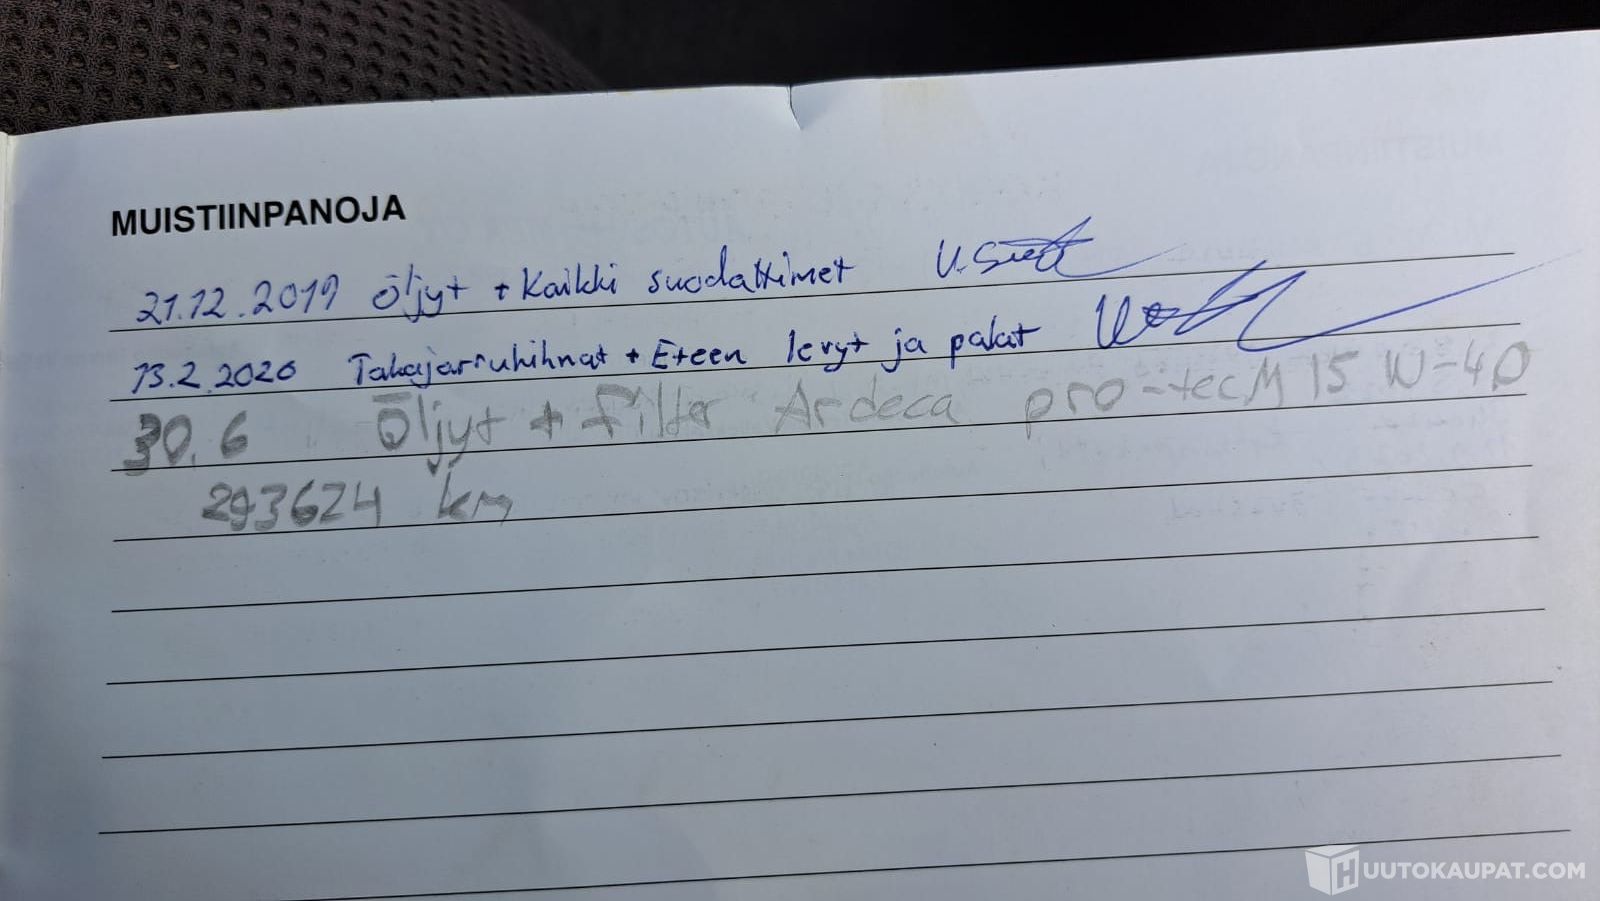 MUISTIINPANOJA
21.12.2019 Öljyt + Kaikki suodattimet
13.2.2020 Takajarruhihnat + Eteen levyt ja palat
30.6 Öljyt + filter Ardeca pro-tec M 15 W-40
293624 km
HUUTOKAUPAT.COM